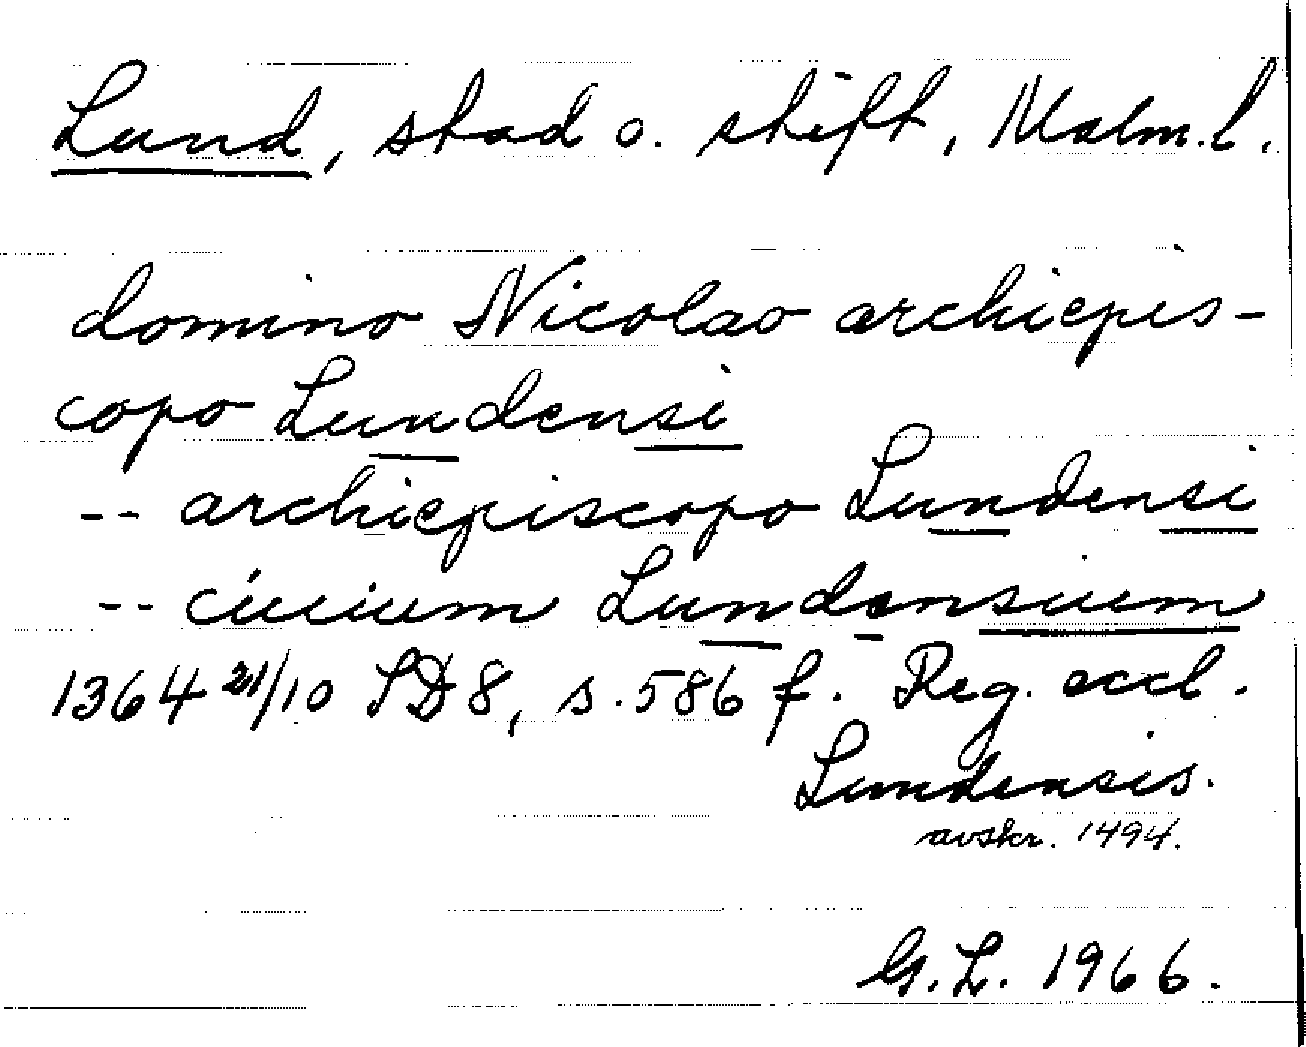 Lund, stad o. stift, Malm.l.
domino Nicolao archiepis-
copo Lundensi
-- archiepiscopo Lundensi
-- ciuium Lundensium
1364 21/10 SD8, s.586 f. Reg. eccl.
Lundensis.
avskr. 1494.
G.L. 1966.